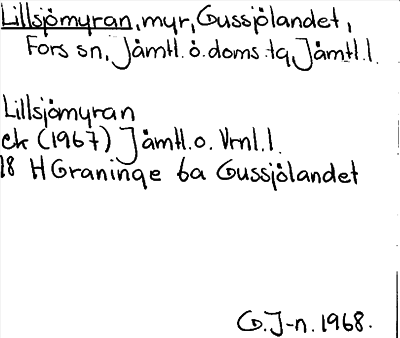 Lillsjömyran, myr, Gussjölandet,
Fors sn, Jämtl. ö. doms. tg, Jämtl. l.
Lillsjömyran
ek (1967) Jämtl. o. Vrnl. l.
18 H Graninge 6a Gussjölandet
G. J-n. 1968.